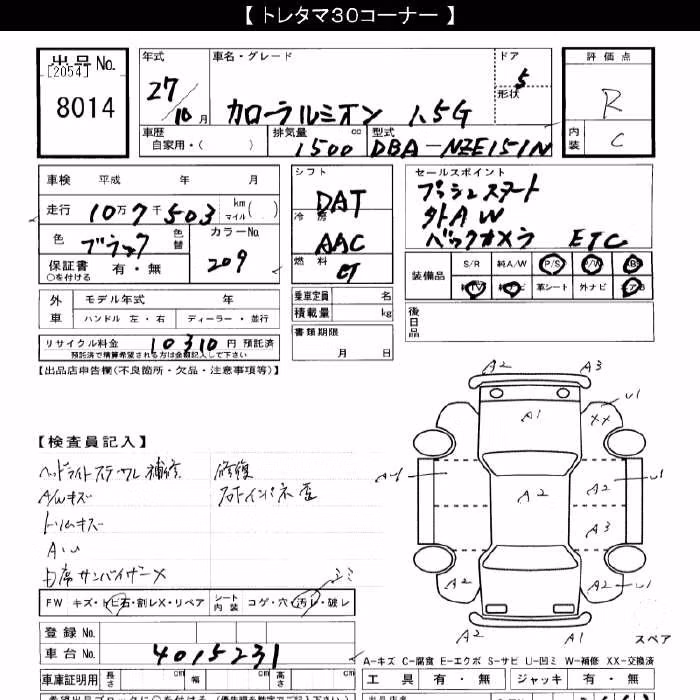 【 トレタマ30コーナー 】
出品No.
[2054]
8014
年式
27/10月
車名・グレード
カローラルミオン 1.5G
ドア
5
形状
評価点
R
内装
C
車歴
自家用・( )
排気量
1500 cc
型式
DBA-NZE151N
車検 平成 年 月
走行 10万7千503 km マイル( )
色 ブラック 色替
カラーNo.
209
保証書 有・無
○を付ける
シフト
DAT
冷房
AAC
燃料
乗車定員 名
積載量 kg
書類期限
月 日
セールスポイント
プッシュスタート
外AW
バックカメラ ETC
装備品
S/R 純A/W P/S P/W ABS
純TV 純ナビ 革シート 外ナビ エアB
後日品
外車
モデル年式 年
ハンドル 左・右 ディーラー・並行
リサイクル料金 10310 円 預託済
預託済で精算希望される方は金額記入して下さい
【出品店申告欄(不良箇所・欠品・注意事項等)】
【検査員記入】
A/Wキズ
トリムキズ
A・U
修復
FW キズ・トビ石・割レX・リペア
シート内装 コゲ・穴・汚レ・破レ
登録No.
車台No. 4015231
車庫証明用 長さ cm 幅 cm 高さ cm
A2 A3
A1 XX U1
A2 A2 U1
A3
A2 A2 U1
A2 A1
スペア
A-キズ C-腐食 E-エクボ S-サビ U-凹ミ W-補修 XX-交換済
工具 有・無 ジャッキ 有・無